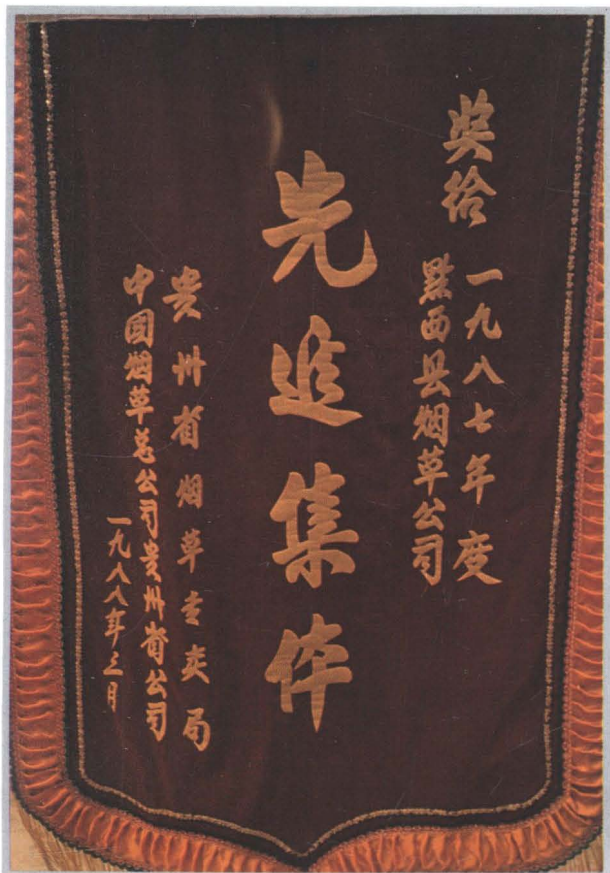 奖给
一九八七年度
黔西县烟草公司
先进集体
贵州省烟草专卖局
中国烟草总公司贵州省公司
一九八八年三月